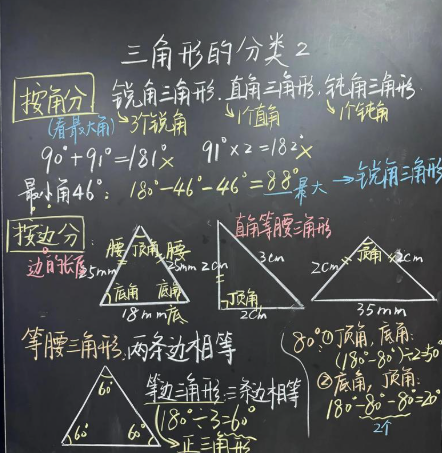 三角形的分类2
按角分 锐角三角形.直角三角形,钝角三角形
(看最大角) 3个锐角 1个直角 1个钝角
90°+91°=181°× 91°×2=182°×
最小角46°: 180°-46°-46°=88° 最大 → 锐角三角形
按边分: 直角等腰三角形
边的长度
腰 顶角 腰
5mm 25mm
底角 底角
18mm 底
2cm 3cm
顶角
2cm
2cm 顶角 2cm
35mm
等腰三角形:两条边相等
80°:①顶角,底角:
(180°-80°)÷2=50°
②底角,顶角:
180°-80°-80°=20°
2个
等边三角形:三条边相等
180°÷3=60°
→正三角形
60°
60° 60°